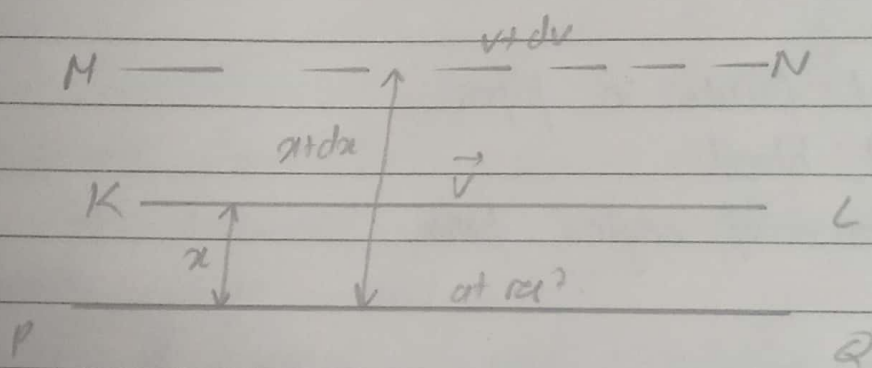 v+dv
M N
x+dx
K v⃗ L
x
at rest
P Q